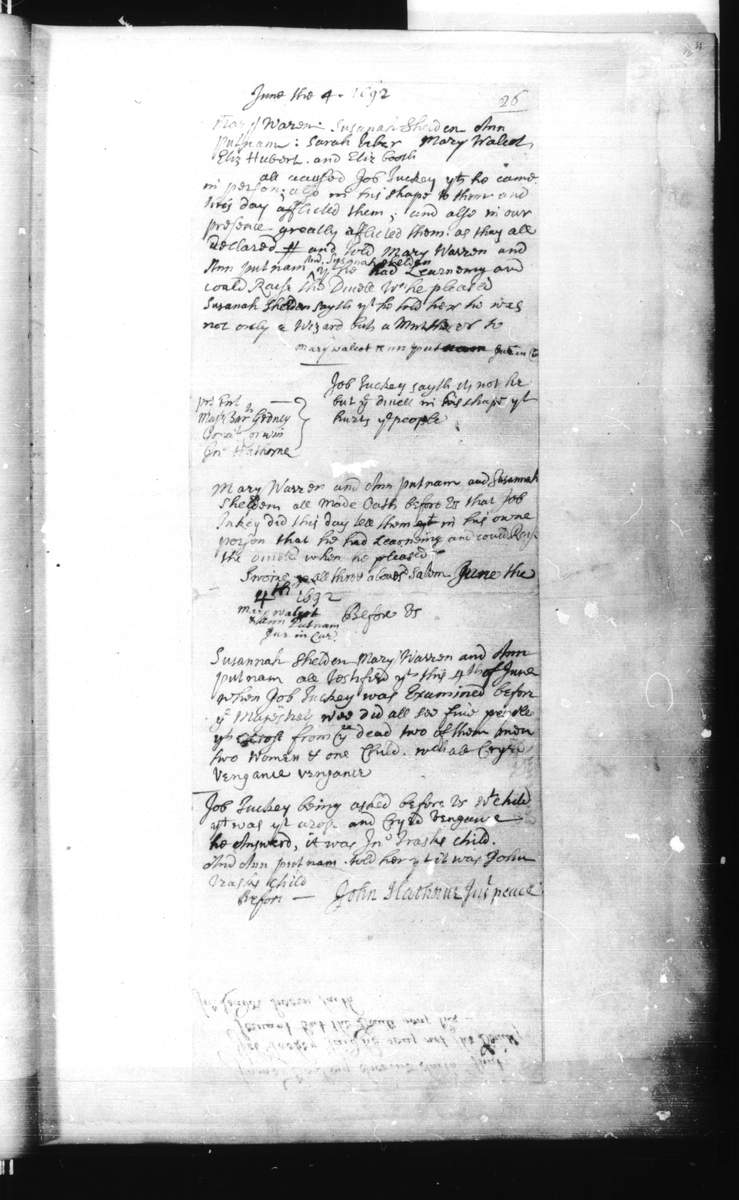 4
June the 4. 1692
26
Mary Waren: Susanah Shelden Ann
putnam: Sarah biber Mary Walcot
Eliz Hubert. and Eliz booth
all accused Job Tuckey yt he came
in person; also in his shape & threw and
this day afflicted them; and also in our
presence greatly aflicted them. as they all
declared and told Mary Warren and
Ann putnam and Susanah Shelden yt he had Learneing and
could Raise the Divele wn he pleased
Susanah Shelden sayth yt he told her he was
not only a Wizard but a Murtherer to
Mary walcot Ann putnam Jur in Cu
Job Tuckey sayth its not he
but ye divell in his shape yt
hurts ye people
prsent
Majr Bar Gedney
Jona: Corwin
Jno Hathorne
Mary Warren and Ann putnam and Susannah
Shelden all Made Oath before us that Job
Tukey did this day tell them yt in his owne
person that he had Learneing and could Raise
the divele when he pleased
Sworne all three aboved Salem June the
4th 1692
Mary walcot
& Ann Putnam Before us
Jur in Cur
Susannah Shelden Mary Warren and Ann
putnam all testified yt this 4th of June
when Job Tuckey was Examined before
ye Majestrets wee did all see five people
yt arose from ye dead two of them men
two Women & one Child. wch all Cryed
vengance vengance
Job Tuckey being asked before us wt child
yt was yt arose and Cryed Vengance
he Answerd, it was Jno Trasks child.
And Ann putnam told her yt it was John
Trasks child
Before — John Hathorne Jus peace